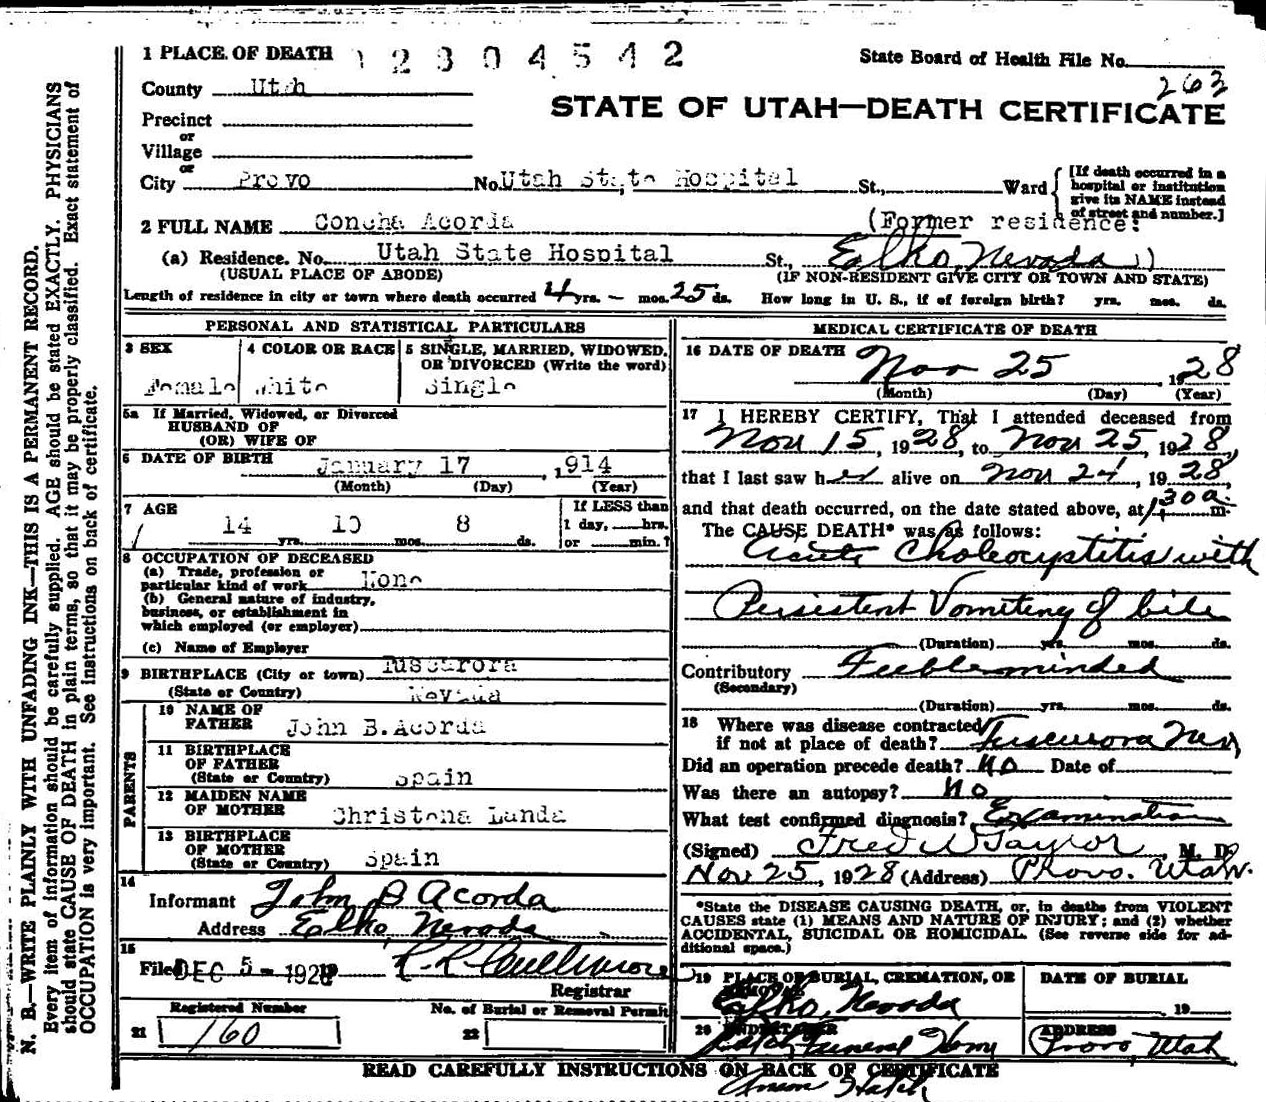 1 PLACE OF DEATH 12804542 State Board of Health File No. 263
County Utah
STATE OF UTAH—DEATH CERTIFICATE
Precinct
or
Village
or
City Provo No. Utah State Hospital St., Ward [If death occurred in a hospital or institution give its NAME instead of street and number.]
2 FULL NAME Concha Acorda (Former residence:
(a) Residence. No. Utah State Hospital St., Elko, Nevada )
(USUAL PLACE OF ABODE) (IF NON-RESIDENT GIVE CITY OR TOWN AND STATE)
Length of residence in city or town where death occurred 4 yrs. — mos. 25 ds. How long in U. S., if of foreign birth? yrs. mos. ds.
PERSONAL AND STATISTICAL PARTICULARS
3 SEX Female
4 COLOR OR RACE White
5 SINGLE, MARRIED, WIDOWED, OR DIVORCED (Write the word) Single
5a If Married, Widowed, or Divorced
HUSBAND OF
(OR) WIFE OF
6 DATE OF BIRTH January 17, 1914
(Month) (Day) (Year)
7 AGE 14 yrs. 10 mos. 8 ds. If LESS than 1 day, hrs. or min.?
8 OCCUPATION OF DECEASED
(a) Trade, profession or
particular kind of work None
(b) General nature of industry,
business, or establishment in
which employed (or employer)
(c) Name of Employer
9 BIRTHPLACE (City or town) Tuscarora
(State or Country) Nevada
PARENTS
10 NAME OF
FATHER John B. Acorda
11 BIRTHPLACE
OF FATHER
(State or Country) Spain
12 MAIDEN NAME
OF MOTHER Christena Landa
13 BIRTHPLACE
OF MOTHER
(State or Country) Spain
14
Informant John B Acorda
Address Elko, Nevada
15
Filed DEC 5 - 1928
Registrar
Registered Number
21 160
No. of Burial or Removal Permit
22
MEDICAL CERTIFICATE OF DEATH
16 DATE OF DEATH Nov 25, 1928
(Month) (Day) (Year)
17 I HEREBY CERTIFY, That I attended deceased from
Nov 15, 1928, to Nov 25, 1928,
that I last saw her alive on Nov 24, 1928
and that death occurred, on the date stated above, at 1:30a m.
The CAUSE DEATH* was as follows:
Acute Cholecystitis with
Persistent Vomiting of bile
(Duration) yrs. mos. ds.
Contributory Feebleminded
(Secondary)
(Duration) yrs. mos. ds.
18 Where was disease contracted
if not at place of death? Tuscurora Nev
Did an operation precede death? No Date of
Was there an autopsy? No
What test confirmed diagnosis? Examination
(Signed) Fred W Taylor M. D.
Nov 25, 1928 (Address) Provo. Utah.
*State the DISEASE CAUSING DEATH, or, in deaths from VIOLENT
CAUSES state (1) MEANS AND NATURE OF INJURY; and (2) whether
ACCIDENTAL, SUICIDAL OR HOMICIDAL. (See reverse side for ad-
ditional space.)
19 PLACE OF BURIAL, CREMATION, OR
REMOVAL
Elko, Nevada
DATE OF BURIAL
19
20 UNDERTAKER
Hatch Funeral Home
ADDRESS
Provo, Utah
READ CAREFULLY INSTRUCTIONS ON BACK OF CERTIFICATE
Hatch
N. B.—WRITE PLAINLY WITH UNFADING INK—THIS IS A PERMANENT RECORD.
Every item of information should be carefully supplied. AGE should be stated EXACTLY. PHYSICIANS
should state CAUSE OF DEATH in plain terms, so that it may be properly classified. Exact statement of
OCCUPATION is very important. See instructions on back of certificate.